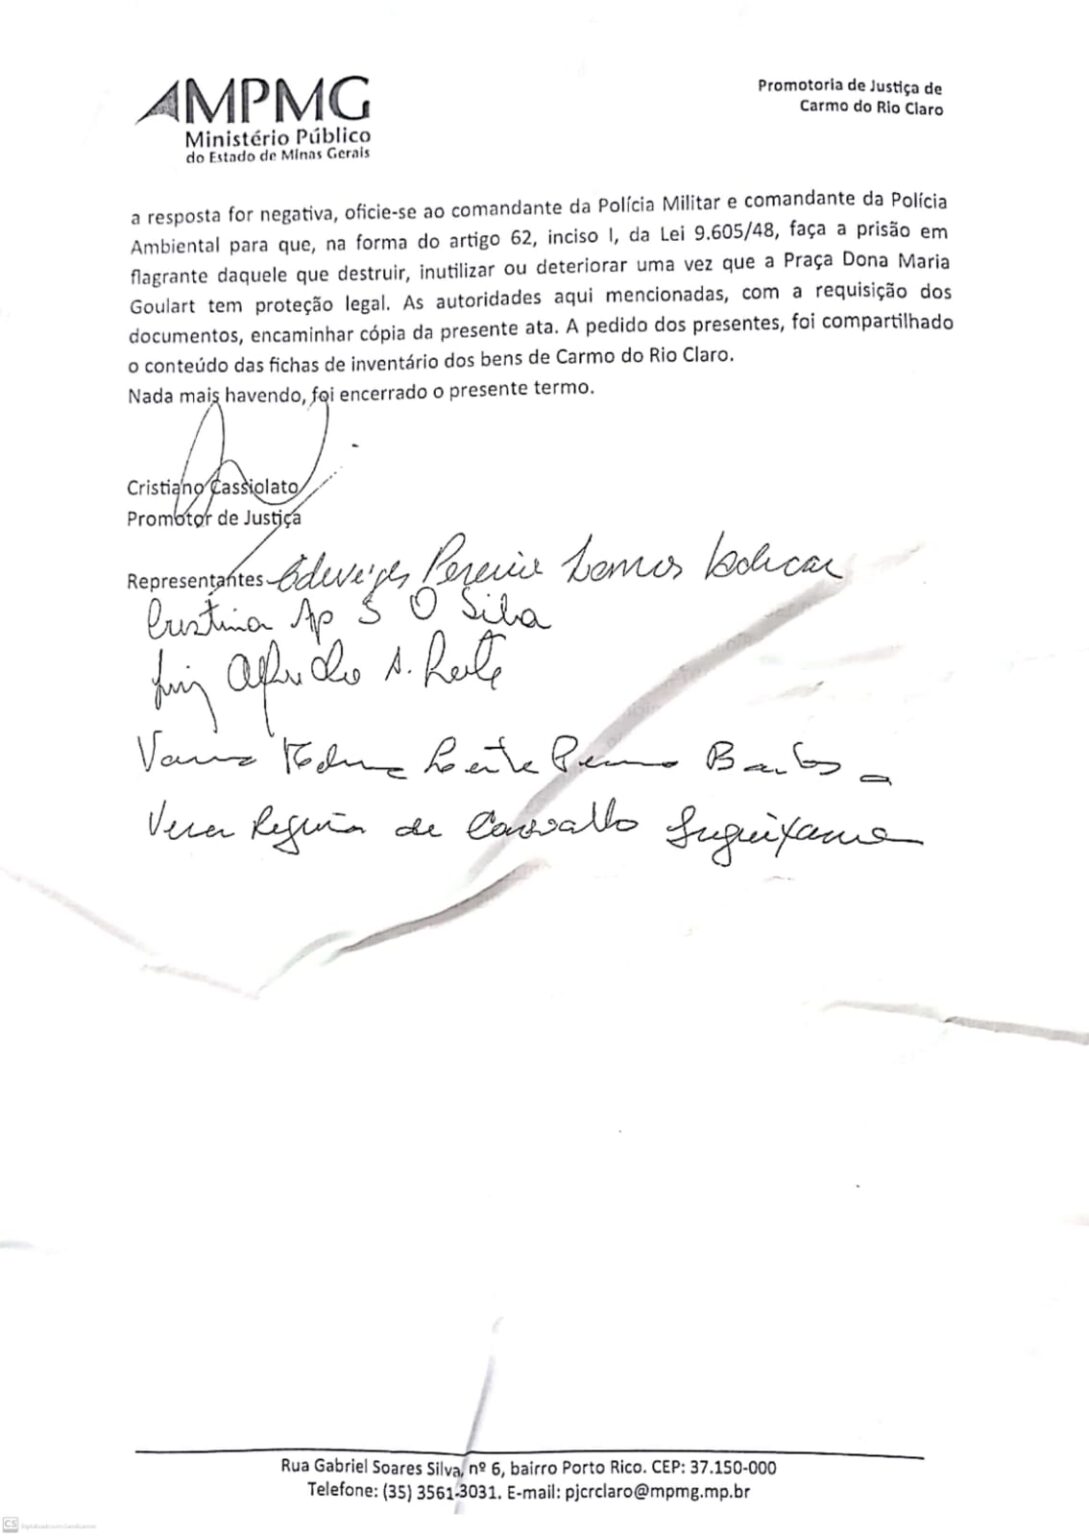 MPMG
Ministério Público
do Estado de Minas Gerais
Promotoria de Justiça de
Carmo do Rio Claro
a resposta for negativa, oficie-se ao comandante da Polícia Militar e comandante da Polícia
Ambiental para que, na forma do artigo 62, inciso I, da Lei 9.605/48, faça a prisão em
flagrante daquele que destruir, inutilizar ou deteriorar uma vez que a Praça Dona Maria
Goulart tem proteção legal. As autoridades aqui mencionadas, com a requisição dos
documentos, encaminhar cópia da presente ata. A pedido dos presentes, foi compartilhado
o conteúdo das fichas de inventário dos bens de Carmo do Rio Claro.
Nada mais havendo, foi encerrado o presente termo.
Cristiano Cassiolato
Promotor de Justiça
Representantes Edeviges Pereira Lemos
Cristina Ap S O Silva
Luiz Alfredo A. Leite
Leite
Vera Regina de Carvalho
Rua Gabriel Soares Silva, nº 6, bairro Porto Rico. CEP: 37.150-000
Telefone: (35) 3561-3031. E-mail: pjcrclaro@mpmg.mp.br
CS